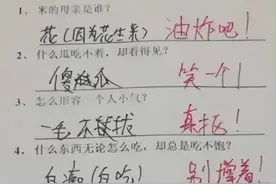 1、米的母亲是谁?
花(因为花生米) 油炸吧!
2、什么瓜吃不着,却看得见?
傻瓜 笑一个!
3、怎么形容一个人小气?
一毛不拔 真抠!
4、什么东西无论怎么吃,却总是吃不饱?
白痴(白吃) 别撑着!